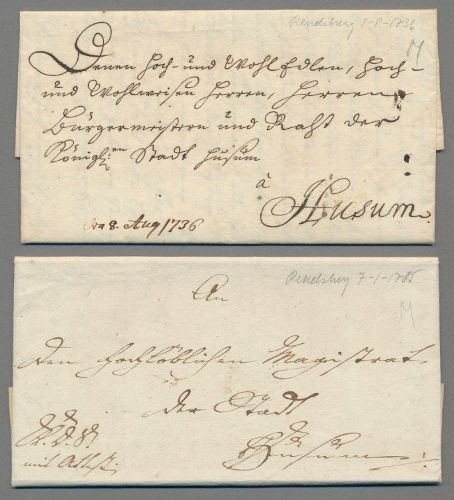 Rendsburg 1-8-1736
M
Denen Hoch- und WohlEdlen, Hoch-
und Wohlweisen Herren, Herren
Bürgermeistern und Raht der
Königl:en Stadt Husum
à
Husum.
den 8. Aug 1736
Rendsburg 7-1-1785
M
An
den hochlöblichen Magistrat
der Stadt
Husum
mit Attest